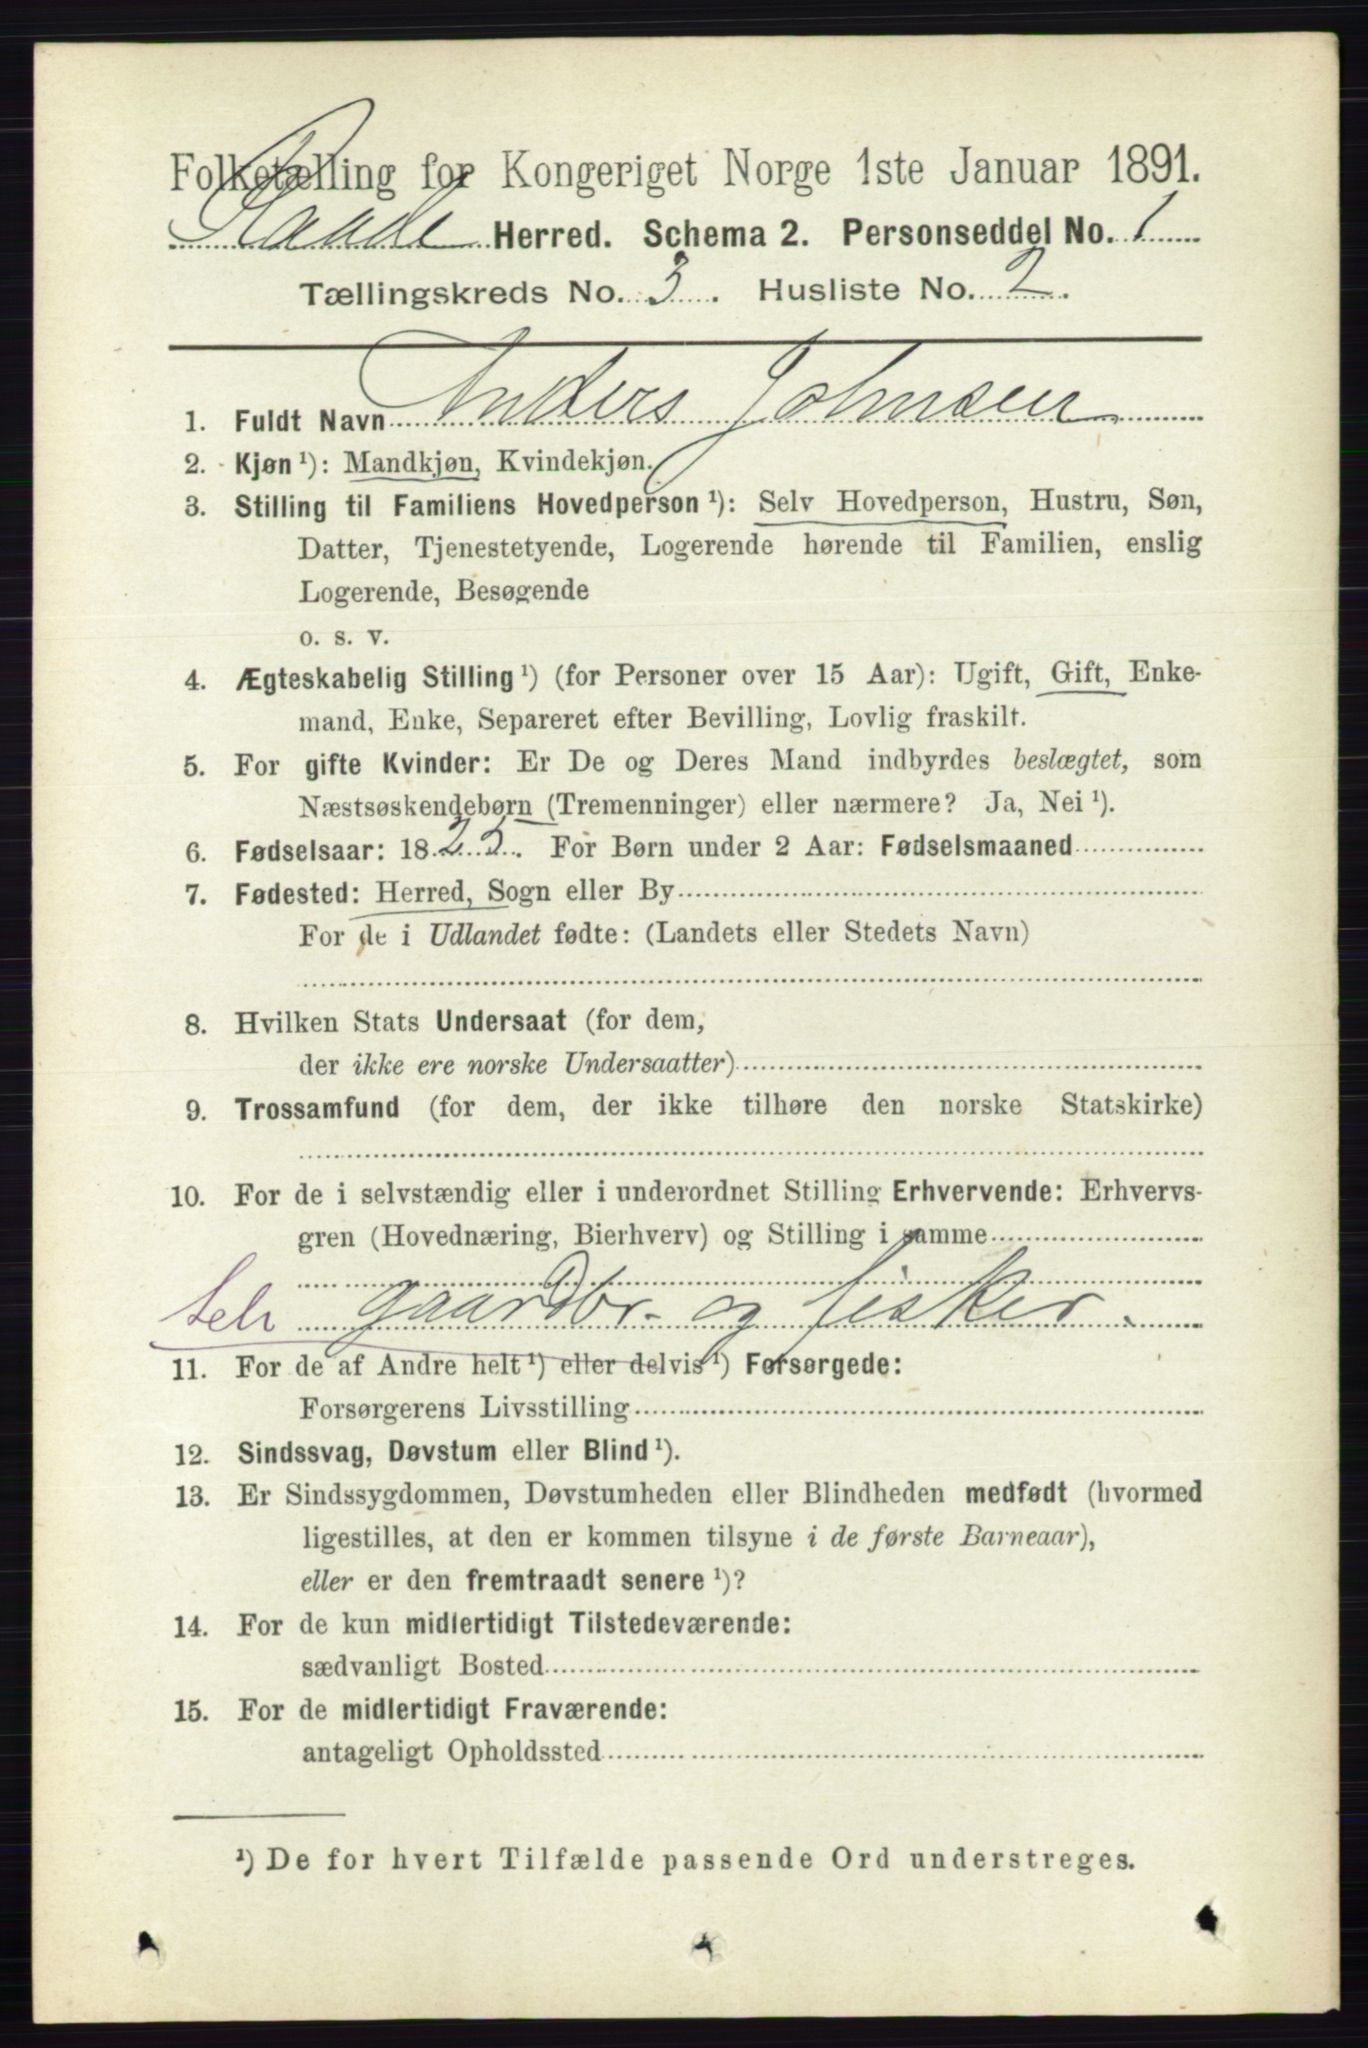 Folketælling for Kongeriget Norge 1ste Januar 1891.
Raade Herred. Schema 2. Personseddel No. 1
Tællingskreds No. 3. Husliste No. 2.
1. Fuldt Navn Anders Johnsen
2. Kjøn ¹): Mandkjøn, Kvindekjøn.
3. Stilling til Familiens Hovedperson ¹): Selv Hovedperson, Hustru, Søn,
Datter, Tjenestetyende, Logerende hørende til Familien, enslig
Logerende, Besøgende
o. s. v.
4. Ægteskabelig Stilling ¹) (for Personer over 15 Aar): Ugift, Gift, Enke-
mand, Enke, Separeret efter Bevilling, Lovlig fraskilt.
5. For gifte Kvinder: Er De og Deres Mand indbyrdes beslægtet, som
Næstsøskendebørn (Tremenninger) eller nærmere? Ja, Nei ¹).
6. Fødselsaar: 1825. For Børn under 2 Aar: Fødselsmaaned
7. Fødested: Herred, Sogn eller By
For de i Udlandet fødte: (Landets eller Stedets Navn)
8. Hvilken Stats Undersaat (for dem,
der ikke ere norske Undersaatter)
9. Trossamfund (for dem, der ikke tilhøre den norske Statskirke)
10. For de i selvstændig eller i underordnet Stilling Erhvervende: Erhvervs-
gren (Hovednæring, Bierhverv) og Stilling i samme
selv gaardbr. og fisker.
11. For de af Andre helt ¹) eller delvis ¹) Forsørgede:
Forsørgerens Livsstilling
12. Sindssvag, Døvstum eller Blind ¹).
13. Er Sindssygdommen, Døvstumheden eller Blindheden medfødt (hvormed
ligestilles, at den er kommen tilsyne i de første Barneaar),
eller er den fremtraadt senere ¹)?
14. For de kun midlertidigt Tilstedeværende:
sædvanligt Bosted
15. For de midlertidigt Fraværende:
antageligt Opholdssted
¹) De for hvert Tilfælde passende Ord understreges.